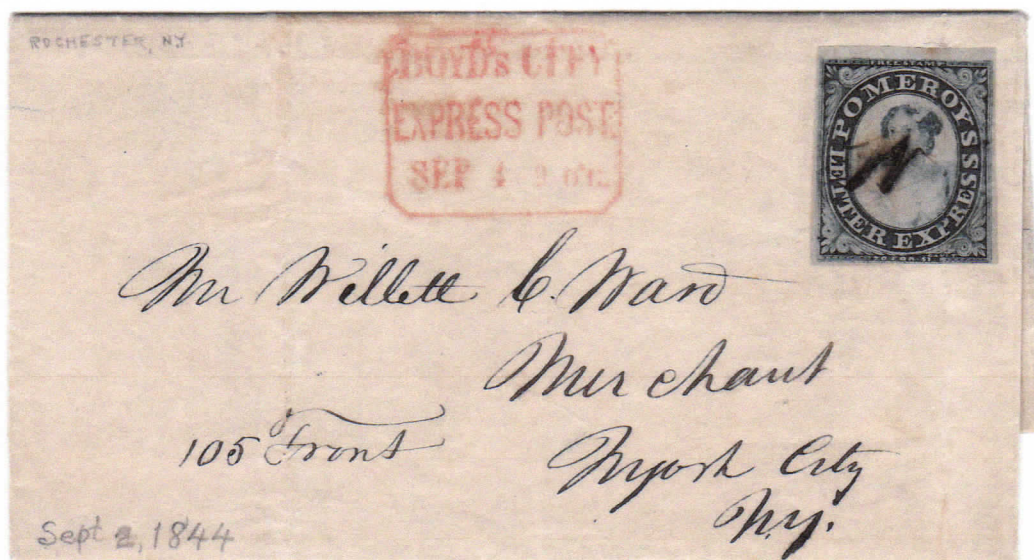 ROCHESTER, N.Y.
BOYD's CITY
EXPRESS POST
SEP 4
FREE STAMP
POMEROY'S LETTER EXPRESS
Mr Willett C. Ward
Merchant
105 Front
NYork City
N.Y.
Sept 2, 1844